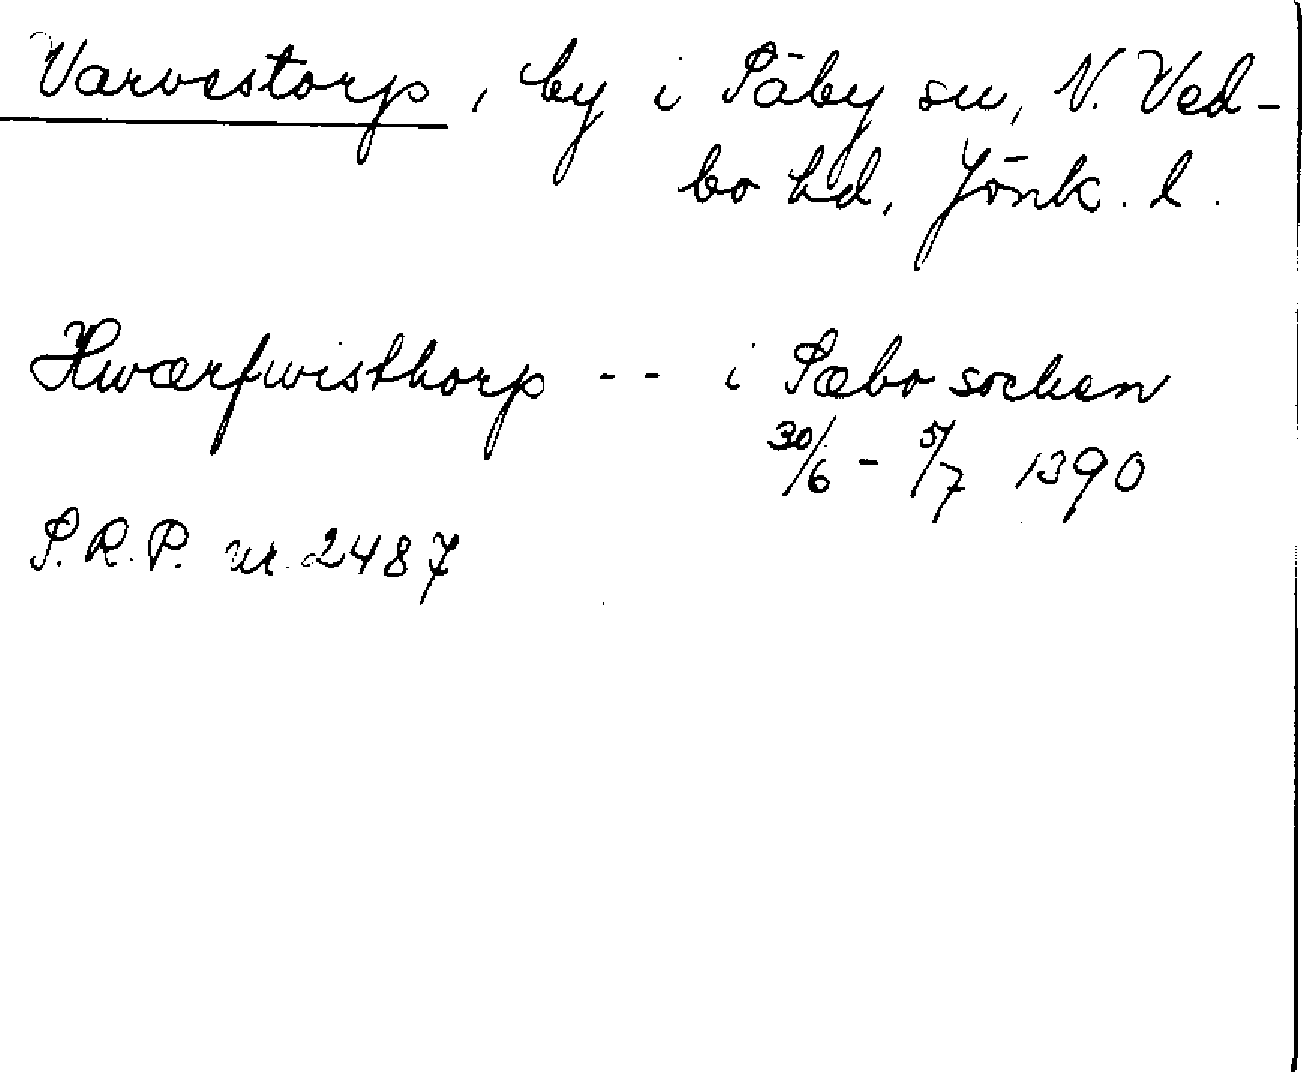 Varvestorp, by i Säby sn, N. Ved-
bo hd, Jönk. l.
Hwærfwisthorp -- i Sæbo socken
30/6 - 5/7 1390
S.R.P. nr. 2487